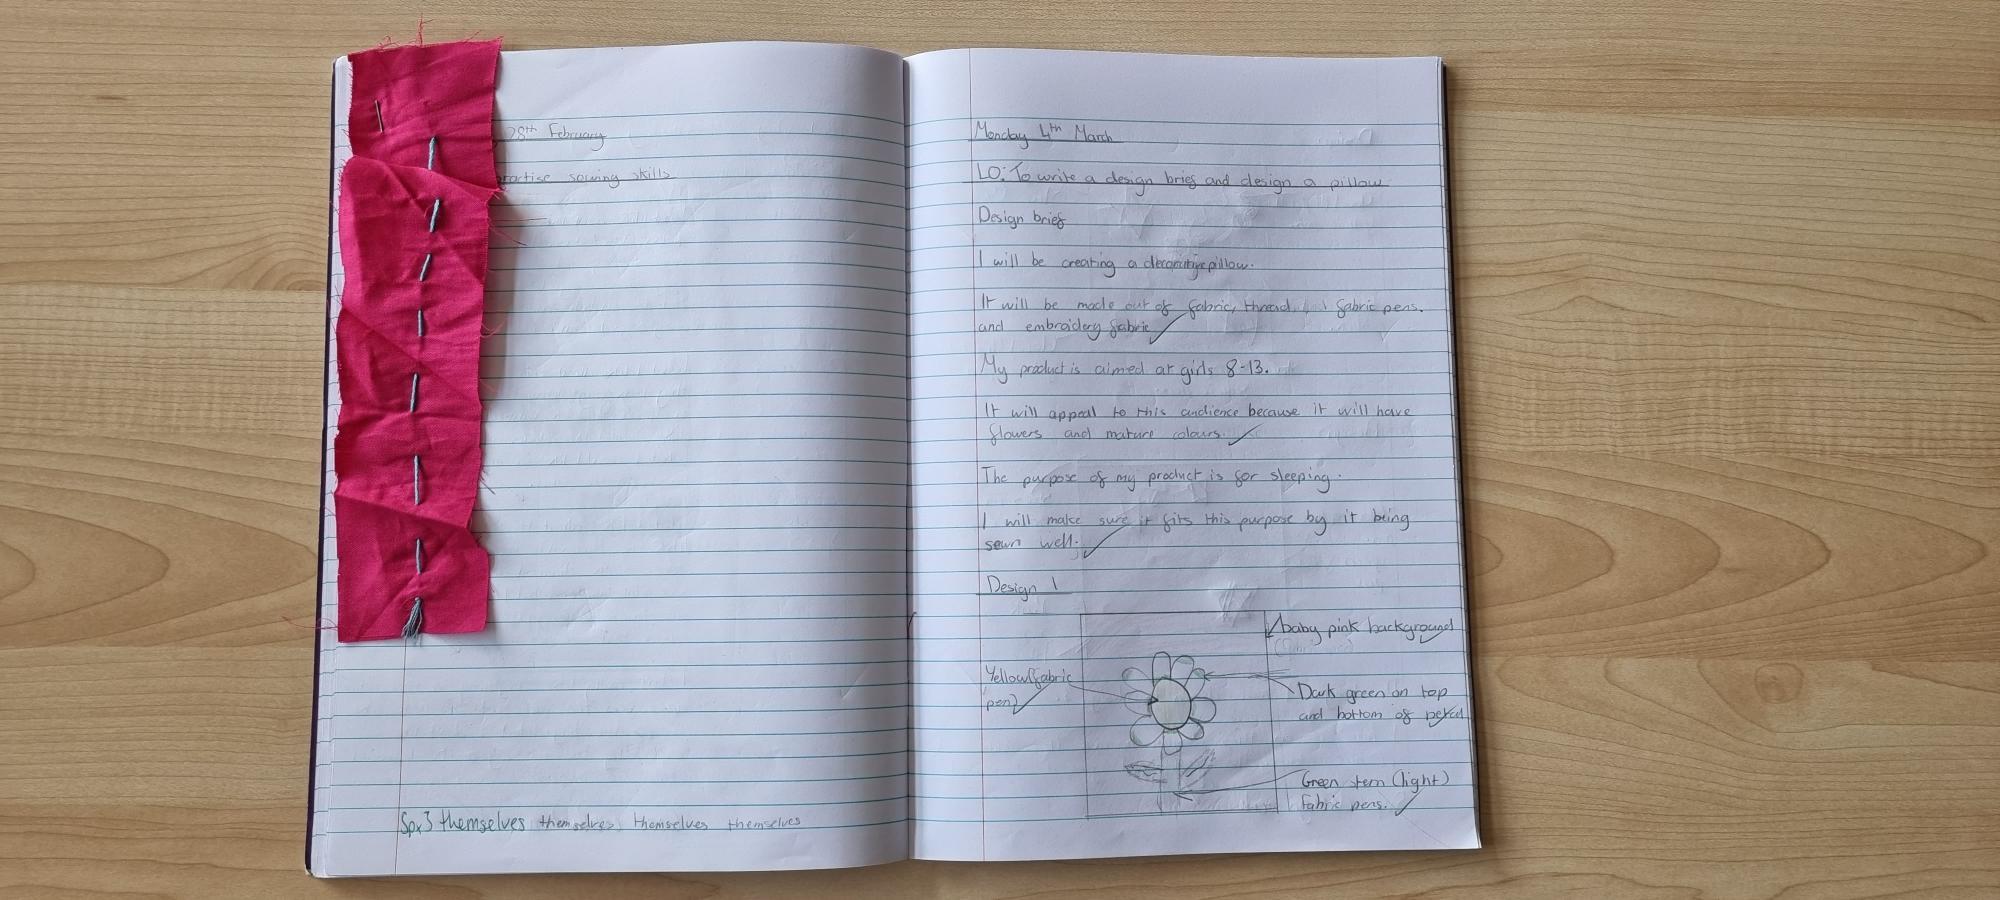 28th February
practise sowing skills
Spx3 themselves themselves themselves themselves
Monday 4th March
LO: To write a design brief and design a pillow
Design brief
I will be creating a decorative pillow.
It will be made out of fabric, thread, fabric pens.
and embroidery fabric
My product is aimed at girls 8-13.
It will appeal to this audience because it will have
flowers and mature colours.
The purpose of my product is for sleeping.
I will make sure it fits this purpose by it being
sewn well.
Design 1
baby pink background
Yellow (fabric
pen)
Dark green on top
and bottom of petal
Green stem (light)
Fabric pens.